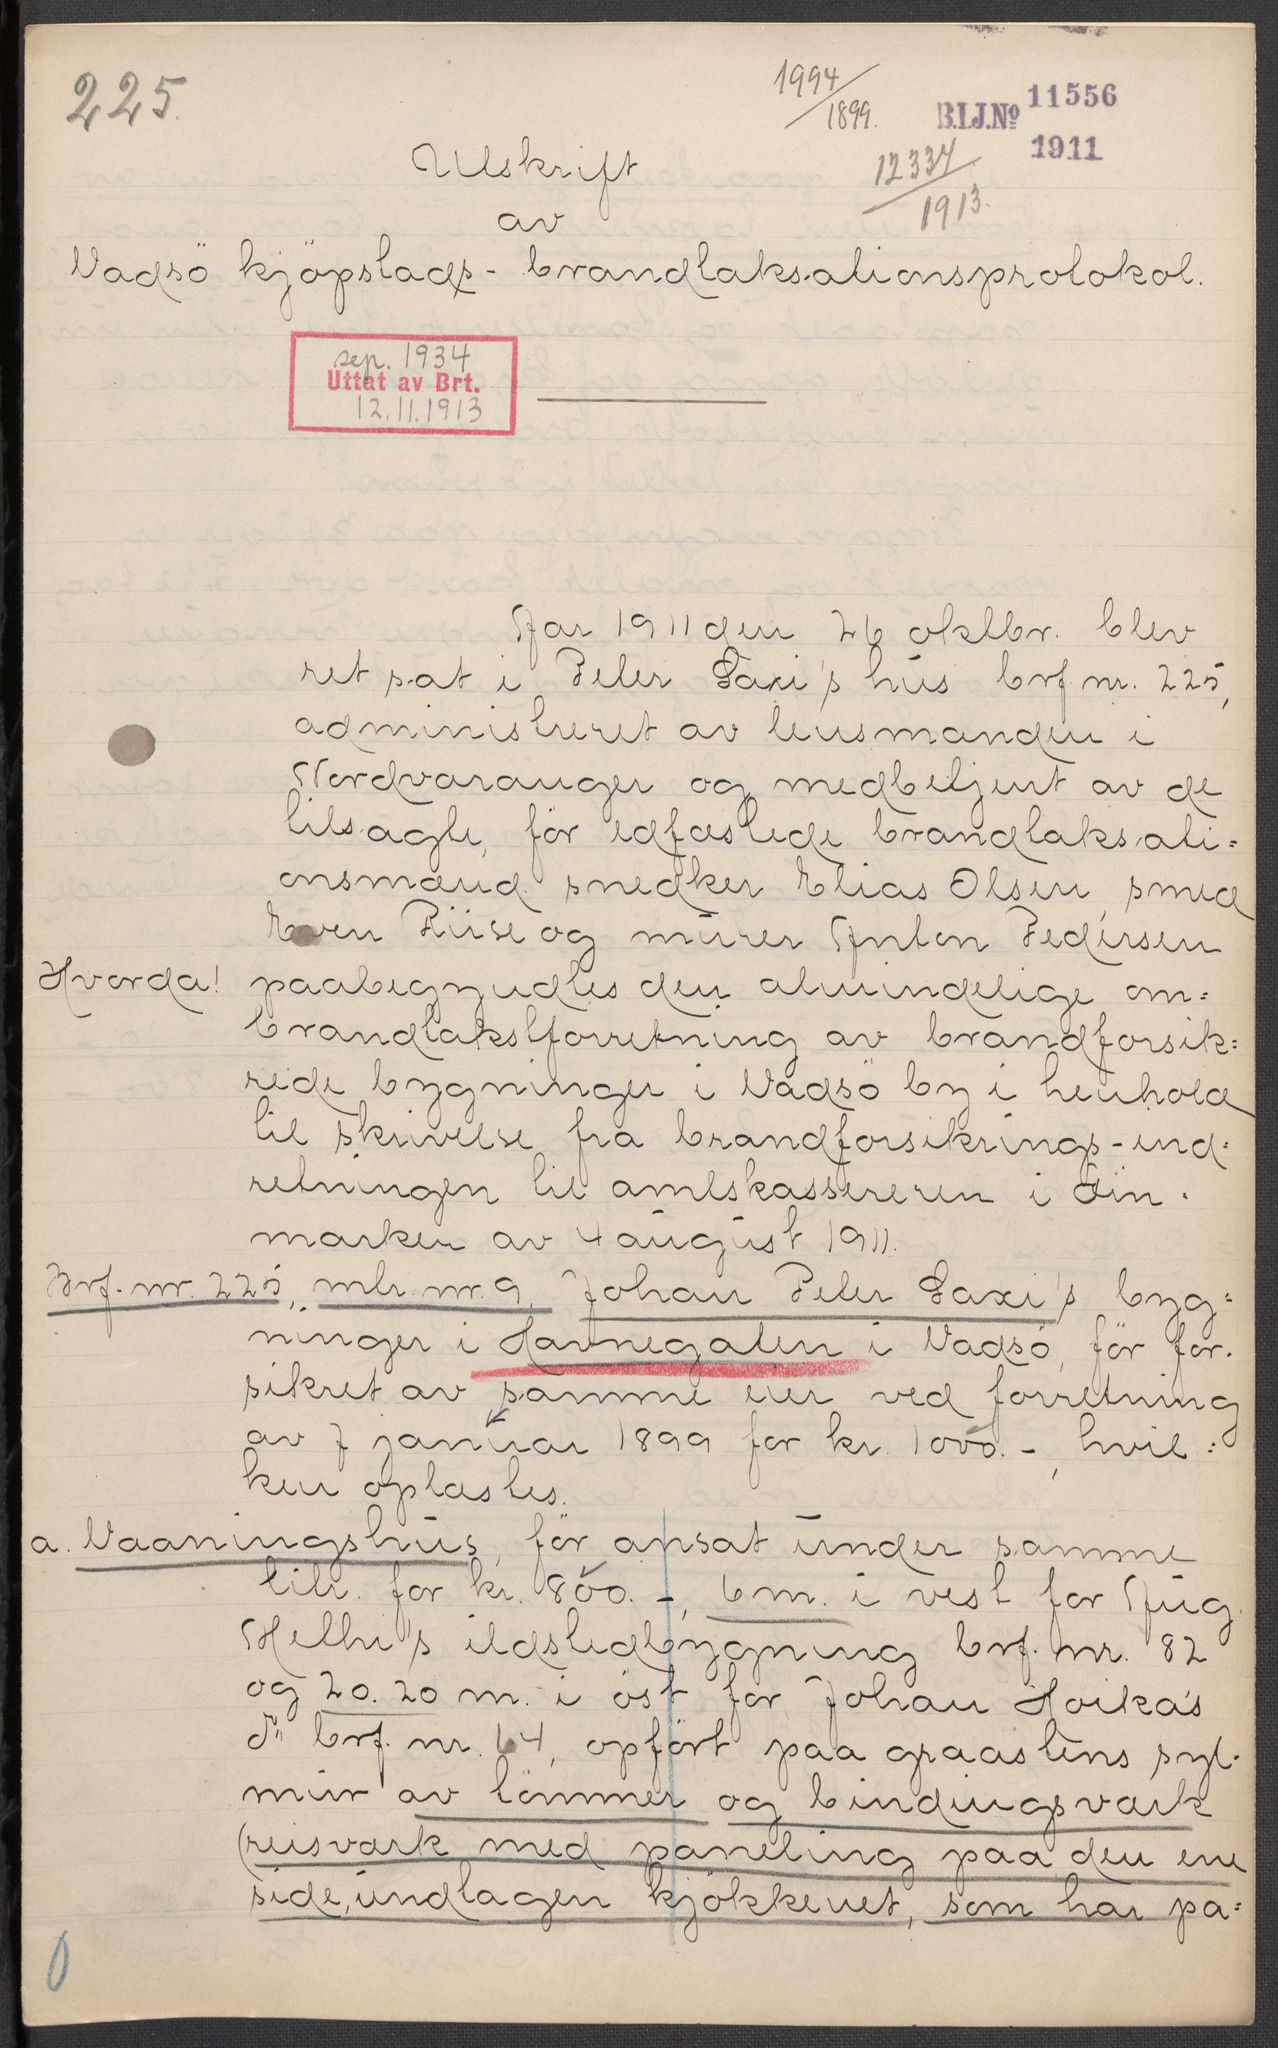 225.
1994/1899.
B.I.J.Nº 11556
1911
12334/1913.
Utskrift
av
Vadsö kjöpstads- brandtaksationsprotokol.
sep. 1934
Uttat av Brt.
12.11.1913
Aar 1911 den 26 oktbr. blev
ret sat i Peter Saxi's hus brf. nr. 225,
administreret av lensmanden i
Nordvaranger og medbetjent av de
tilsagte, för edfæstede brandtaksati=
onsmænd snedker Elias Olsen, smed
Even Riise og murer Anton Pedersen
Hvorda! paabegyndtes den almindelige om=
brandtakstforretning av brandforsik=
rede bygninger i Vadsö by i henhold
til skrivelse fra brandforsikrings-ind=
retningen til amtskassereren i Fin=
marken av 4 august 1911.
Brf. nr. 225, mtr. nr. 9, Johan Peter Saxi's byg=
ninger i Havnegaten i Vadsö, för for=
sikret av samme eier ved forretning
av 7 januar 1899 for kr. 1000.-, hvil=
ken oplæstes.
a. Vaaningshus, för ansat under samme
litr. for kr. 800.-, 6 m. i vest for Aug.
Helhi's ildstedbygning brf. nr. 82
og 20.20 m. i öst for Johan Hoika's
do brf. nr. 64, opfört paa graastens syl=
mur av tömmer og bindingsværk
(reisværk med paneling paa den ene
side, undtagen kjökkenet, som har pa=
0